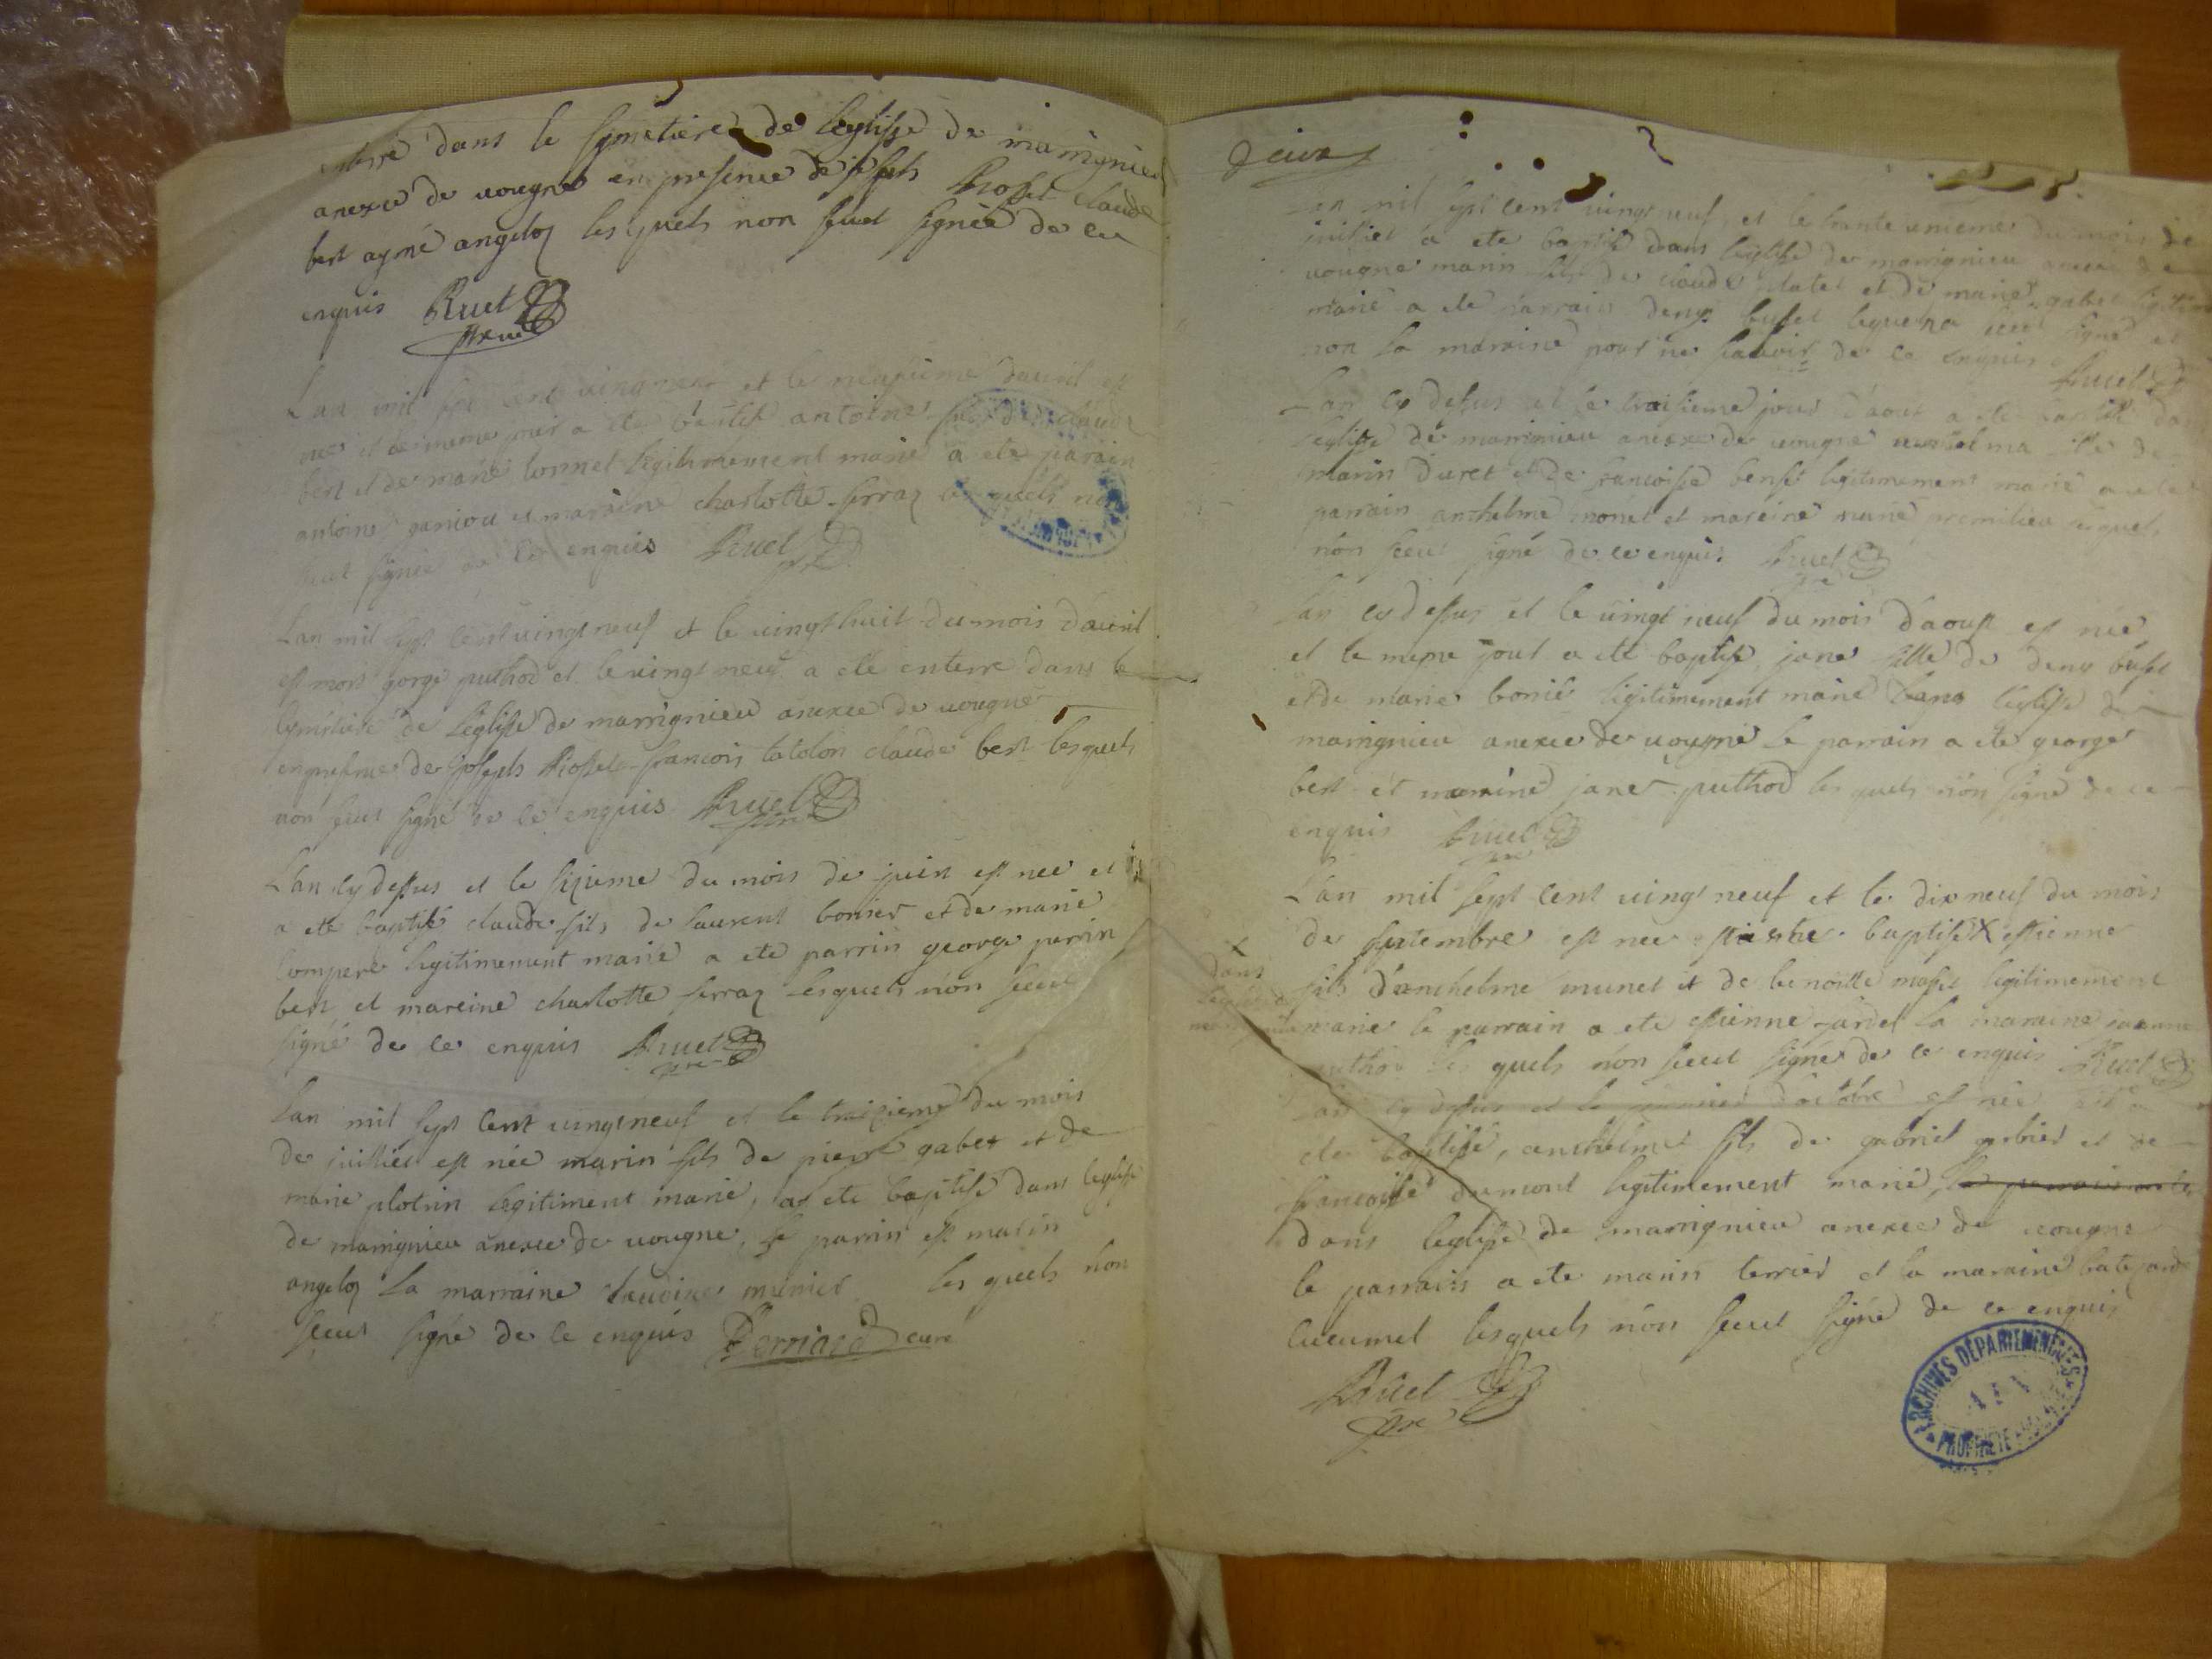 enterré dans le symetiere de leglisse de marrignieu
anexee de uougne en presence de josephs Rosset claude
bert aymé angeloz lesquels non seeut signée de ce
enquis Ruet
pre
Lan mil sept cent uingneuf et le neufieme dauril est
nee et le meme jour a ete batisé antoine fils de claude
bert et de marie bonnet legitimement marié a ete parain
antoine et maraine charlotte serraz les quels non
seeut signée de ce enquis Ruet
Lan mil sept cent uingt neuf et le uingt huit du mois dauril
est mort gorge puthod et le uingt neuf a ete enterre dans le
symetiere de leglisse de marrignieu anexee de uougne
en presence de josephs Rosset francois tatolon claude bert lesquels
non seeut signé de ce enquis Ruet
pre
Lan cy dessus et le sizieme du mois de juin est nee et
a ete baptisé claude fils de laurent bonier et de marie
compere legitimement marié a ete parrin george perrin
bert et mareine charlotte serraz lesquels non seeut
signé de ce enquis Ruet
pre
Lan mil sept cent uingtneuf et le treizieme du mois
de juillet est née marin fils de pierre gabet et de
marie plotin legitiment marié, a ete baptisé dans leglise
de marrignieu anexee de uougne, le parrin est marin
angeloz la marraine claudine minier les quels non
seeut signé de ce enquis Perriard curé
deux
Lan mil sept cent uingt neuf et le trente unieme du mois de
juillet a ete baptisé dans leglise de marrignieu anexee de
uougne marin fils de claude platet et de marie gabet legitim
marié a ete parrain deny buset lequel a seeut signé et
non la maraine pour ne sauoir de ce enquis Ruet
Lan cy dessus et le troisieme jour daout a ete baptisé dans
leglise de marrignieu anexee de uougne fille de
marin duret et de francoise bensé legitimement marié a ete
parrain anthelme monet et mareine premilieu lesquels
non seeut signé de ce enquis Ruet
pre
Lan cy dessus et le uingt neuf du mois daoust est née
et le meme jour a ete baptisé jane fille de deny buset
et de marie bonié legitimement marié dans leglisse de
marrignieu anexee de uougne le parrain a ete george
bert et mareine jane puthod lesquels non signé de ce
enquis Ruet
pre
Lan mil sept cent uingt neuf et le dix neuf du mois
de septembre est nee baptisé X estienne
X dans
leglise de
marrignieu
fils danthelme munet et de benoitte masset legitimement
marié le parrain a ete estienne jardet la maraine jeanne
puthod les quels non seeut signé de ce enquis Ruet
Lan cy dessus et le premier doctobre est née et a
ete baptisé, anthelme fils de gabriel gerbier et de
francoise dumont legitimement marié, le parrain a ete
dans leglise de marrignieu anexee de uougne
le parrain a ete marin terrier et la maraine
cueumet lesquels non seeut signé de ce enquis
Ruet
pre
ARCHIVES DÉPARTEMENTALES
PROPRIÉTÉ PUBLIQUE